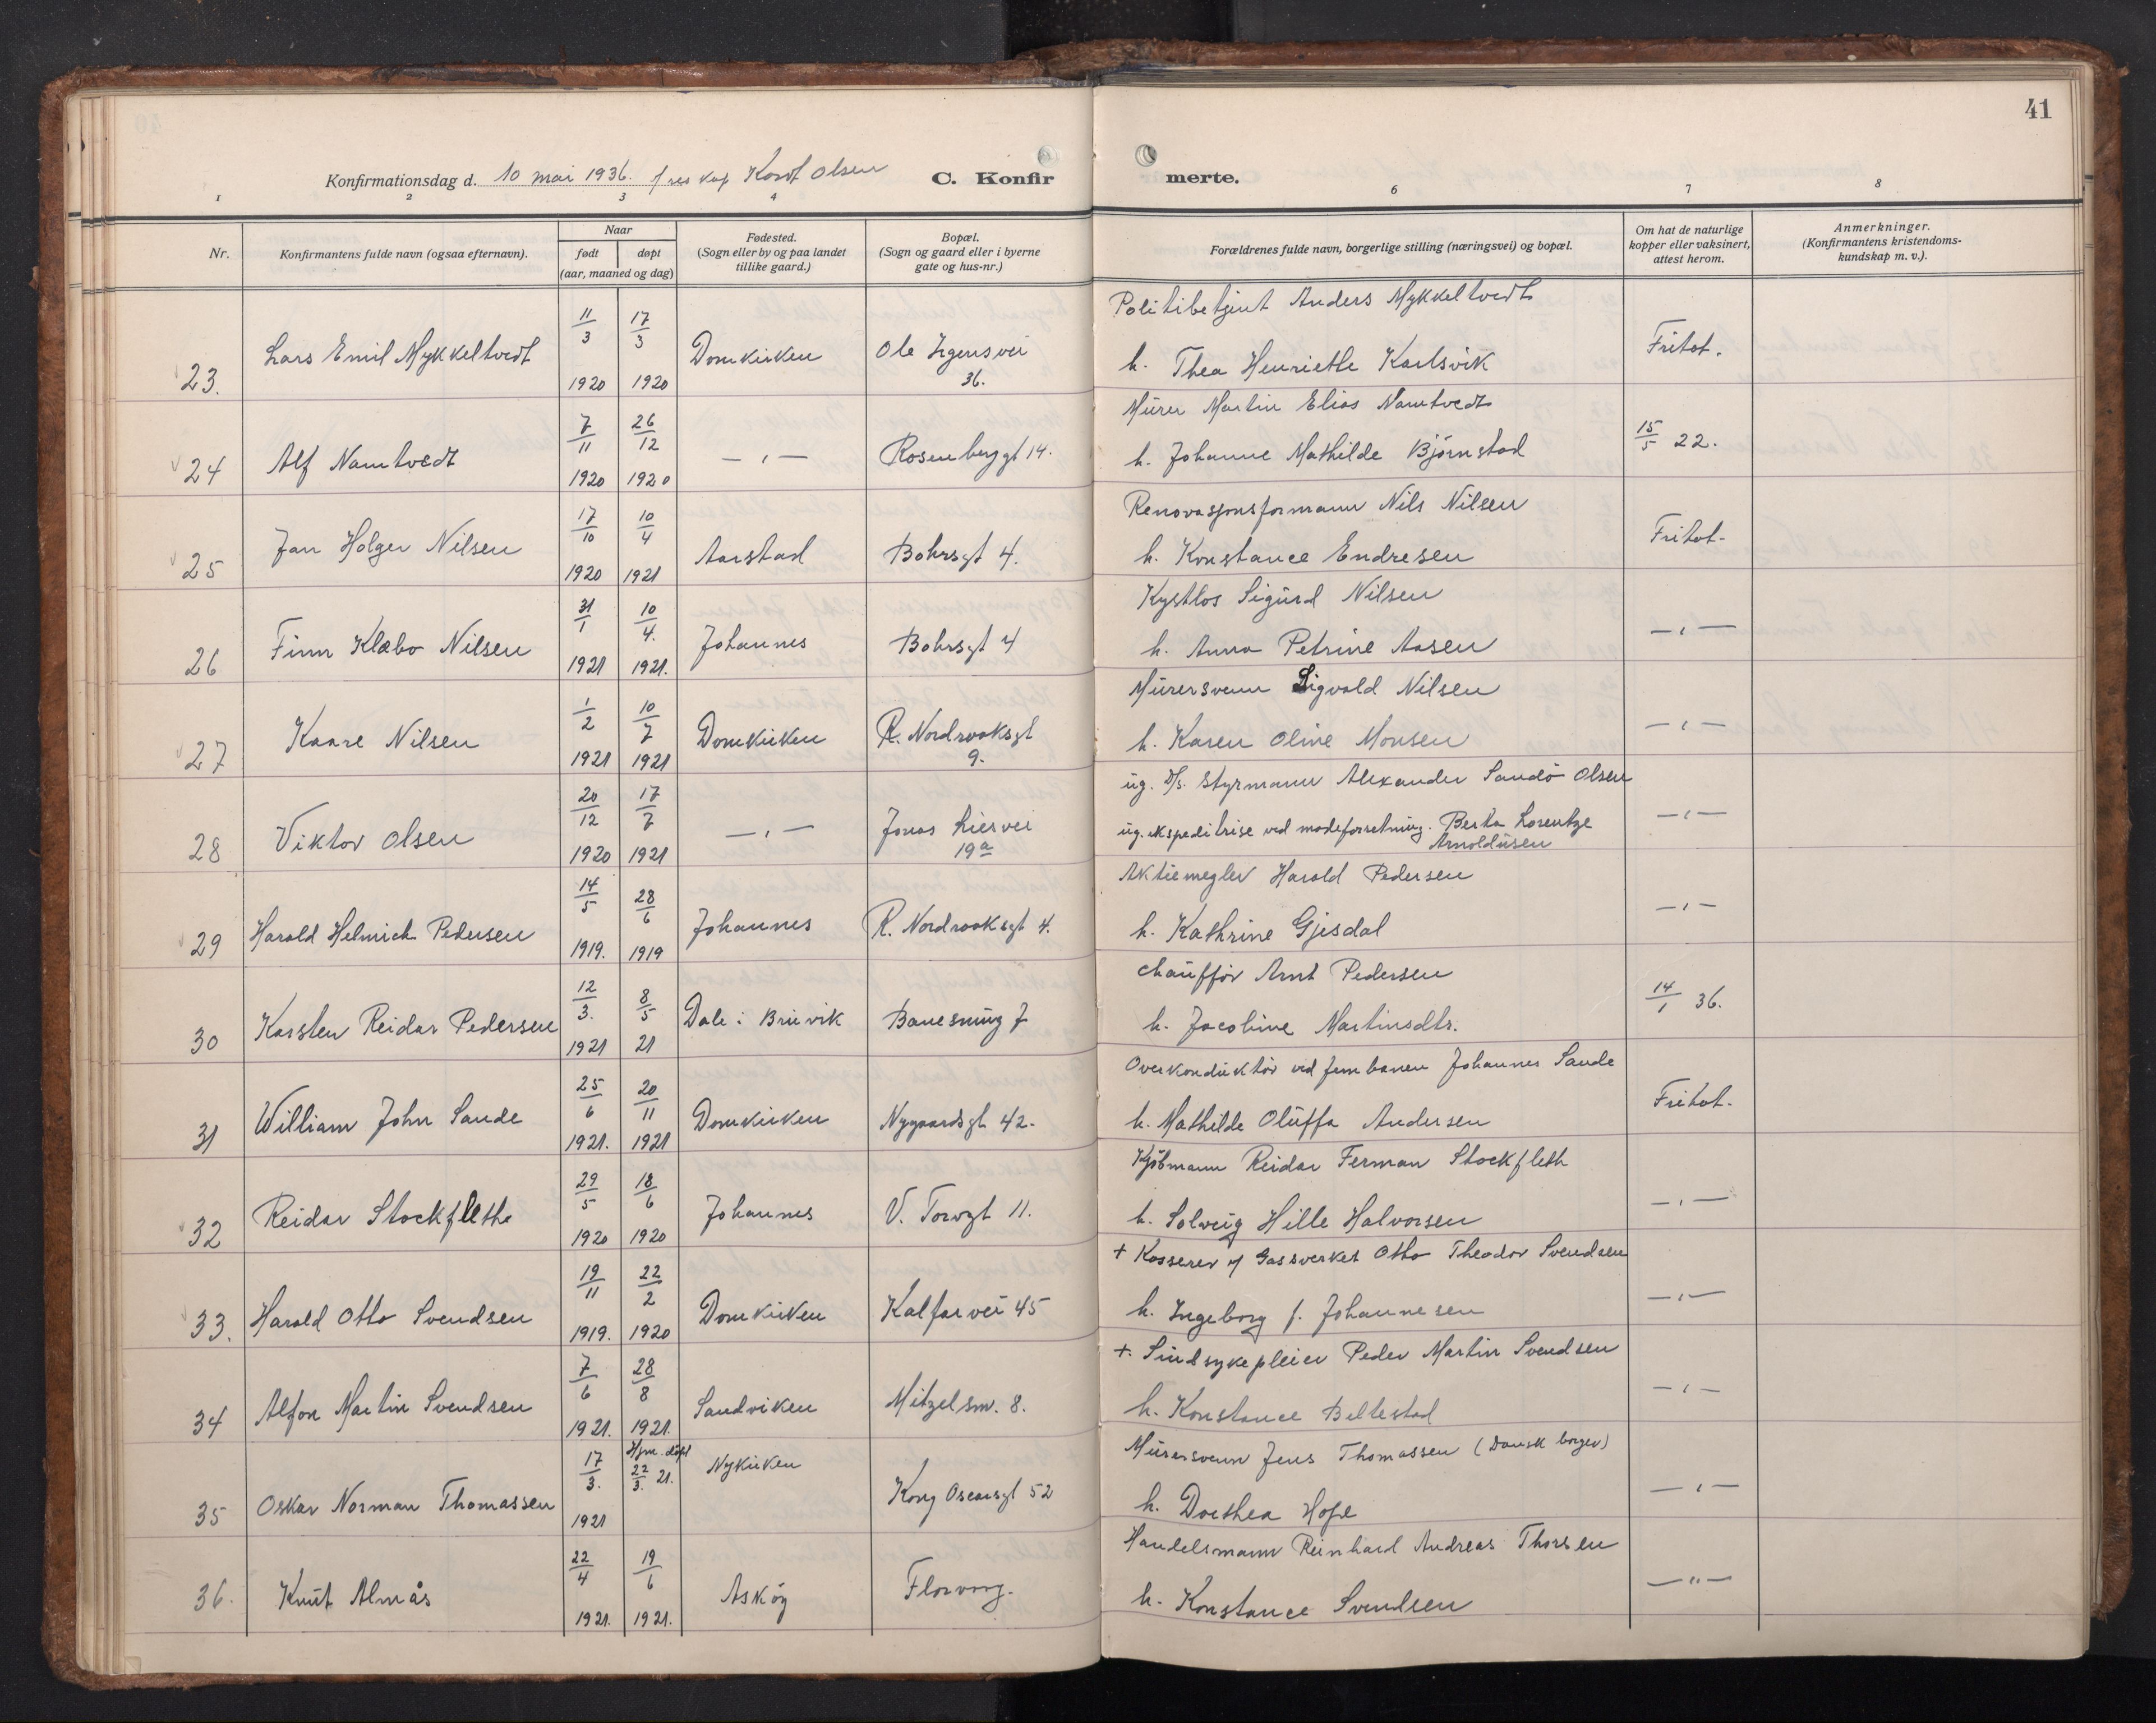 41
Konfirmationsdag d. 10 mai 1936. v/ res kap Kordt Olsen C. Konfir merte.
1 2 3 4 6 7 8
Nr. Konfirmantens fulde navn (ogsaa efternavn). Naar født døpt (aar, maaned og dag) Fødested. (Sogn eller by og paa landet tillike gaard.) Bopæl. (Sogn og gaard eller i byerne gate og hus-nr.) Forældrenes fulde navn, borgerlige stilling (næringsvei) og bopæl. Om hat de naturlige kopper eller vaksinert, attest herom. Anmerkninger. (Konfirmantens kristendoms-kundskap m. v.).
23. Lars Emil Mykkeltvedt 11/3 1920 17/3 1920 Domkirken Ole Irgensvei 36. Politibetjent Anders Mykkeltvedt
h. Thea Henriette Karlsvik Fritat.
24 Alf Namtvedt 7/11 1920 26/12 1920 — " — Rosenberggt 14. Murer Martin Elias Namtvedt
h. Johanne Mathilde Björnstad 15/5 22.
25 Jan Holger Nilsen 17/10 1920 10/4 1921 Aarstad Bohrsgt 4. Renovasjonsformann Nils Nilsen
h. Konstance Endresen Fritat.
26 Finn Klæbo Nilsen 31/1 1921 10/4. 1921. Johannes Bohrsgt 4 Kystlos Sigurd Nilsen
h. Anna Petrine Aasen — " —
27 Kaare Nilsen 1/2 1921 10/7 1921 Domkirken R. Nordraaksgt 9. Murersvenn Sigvald Nilsen
h. Karen Oline Monsen — " —
28 Viktor Olsen 20/12 1920 17/7 1921 — " — Jonas Liesvei 19a ug. D/s. Styrmann Alexander Sandö Olsen
ug. ekspeditrise ved modeforretning. Berta Lorentze Arnoldusen — " —
29 Harald Helmich Pedersen 14/5 1919. 28/6 1919 Johannes R. Nordraaksgt 4. Aktiemegler Harald Pedersen
h. Kathrine Gjesdal — " —
30 Karsten Reidar Pedersen 12/3. 1921 8/5 21 Dale i Bruvik Banesmug 7 Chauffør Arnt Pedersen
h. Jacobine Martinsdtr. 14/1 36.
31 William John Sande 25/6 1921. 20/11 1921 Domkirken Nygaardsgt 42. Overkonduktör ved jernbanen Johannes Sande
h. Mathilde Oluffa Andersen Fritat.
32 Reidar Stockflethe 29/5 1920 18/6 1920 Johannes V. Torvgt 11. Kjöbmann Reidar Ferman Stockfleth
h. Solveig Hille Halvorsen — " —
33. Harald Otto Svendsen 19/11 1919. 22/2 1920 Domkirken Kalfarvei 45 + Kasserer v/ Gassverket Otto Theodor Svendsen
h. Ingeborg f. Johannesen — " —
34 Alfon Martin Svendsen 7/6 1921. 28/8 1921. Sandviken Mitzelsm. 8. +. Sindsykepleier Peder Martin Svendsen
h. Konstance Beltestad — " —
35 Oskar Norman Thomassen 17/3. 1921 Hjm. döpt 22/3. 21. Nykirken Kong Oscarsgt 52 Murersvenn Jens Thomassen (Dansk borger)
h. Dorthea Hope — " —
36. Knut Almås 22/4 1921. 19/6 1921. Asköy Florvaag. Handelsmann Reinhard Andreas Thorsen
h. Konstance Svendsen — " —